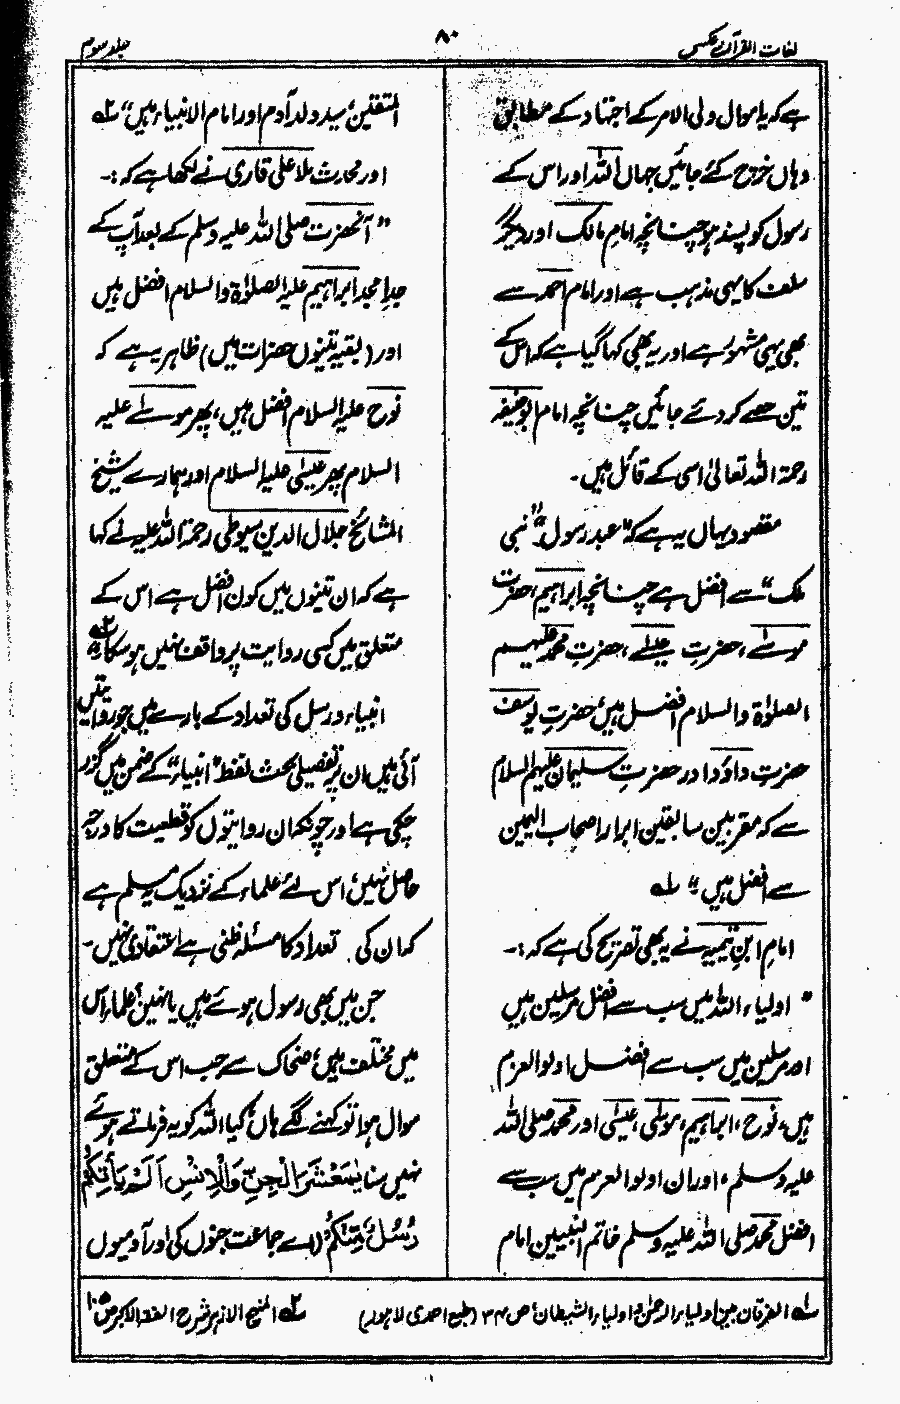 لغات القرآن عکسی
۸۰
جلد سوم
ہے کہ یا اموال ولی الامر کے اجتہاد کے مطابق
وہاں خرچ کئے جائیں جہاں اللہ اور اس کے
رسول کو پسند ہو چنانچہ امام مالک اور دیگر
سلف کا یہی مذہب ہے اور امام احمد سے
بھی یہی مشہور ہے اور یہ بھی کہا گیا ہے کہ اس کے
تین حصے کر دئے جائیں چنانچہ امام ابو حنیفہ
رحمۃ اللہ تعالیٰ اسی کے قائل ہیں۔
مقصود یہاں یہ ہے کہ "عبد رسول" "نبی
ملک" سے افضل ہے چنانچہ ابراہیم، حضرت
موسےٰ، حضرتِ عیسےٰ، حضرتِ محمد علیہم
الصلوٰۃ والسلام افضل ہیں، حضرتِ یوسف
حضرتِ داؤد اور حضرتِ سلیمان علیہم السلام
سے کہ مقربین سابقین ابرار اصحاب الیمین
سے افضل ہیں" لہ
امام ابنِ تیمیہ نے یہ بھی تصریح کی ہے کہ:۔
"اولیاء اللہ میں سب سے افضل مرسلین ہیں
اور مرسلین میں سب سے افضل اولو العزم
ہیں، نوح، ابراہیم، موسٰی، عیسٰی اور محمد صلی اللہ
علیہ وسلم، اور ان اولو العزم میں سب سے
افضل محمد صلی اللہ علیہ وسلم خاتم النبیین امام
المتقین، سید ولد آدم اور امام الانبیاء ہیں" لہ
اور محدث ملا علی قاری نے لکھا ہے کہ:۔
"آنحضرت صلی اللہ علیہ وسلم کے بعد آپ کے
جدِ امجد ابراہیم علیہ الصلوٰۃ والسلام افضل ہیں
اور (بقیہ تینوں حضرات میں) ظاہر یہ ہے کہ
نوح علیہ السلام افضل ہیں، پھر موسےٰ علیہ
السلام پھر عیسٰی علیہ السلام اور ہمارے شیخ
المشائخ جلال الدین سیوطی رحمۃ اللہ علیہ نے کہا
ہے کہ ان تینوں میں کون افضل ہے اس کے
متعلق میں کسی روایت پر واقف نہیں ہو سکا" ۲ہ
انبیاء و رسل کی تعداد کے بارے میں جو روایتیں
آئی ہیں ان پر تفصیلی بحث لفظ "انبیاء" کے ضمن میں گزر
چکی ہے اور چونکہ ان روایتوں کو قطعیت کا درجہ
حاصل نہیں، اس لئے علماء کے نزدیک یہ مسلم ہے
کہ ان کی تعداد کا مسئلہ ظنی ہے اعتقادی نہیں۔
جن میں بھی رسول ہوئے ہیں یا نہیں؟ علماء اس
میں مختلف ہیں، ضحاک سے جب اس کے متعلق
سوال ہوا تو کہنے لگے ہاں، کیا اللہ کو یہ فرماتے ہوئے
نہیں سنا یٰمَعْشَرَ الْجِنِّ وَالْاِنْسِ اَلَمْ یَأْتِکُمْ
رُسُلٌ مِّنْکُمْ، (اے جماعت جنوں کی اور آدمیوں
لہ الفرقان بین اولیاء الرحمٰن و اولیاء الشیطان، ص ۳۴ (طبع احمدی لاہور)
۲ہ المنح الازہر شرح الفقہ الاکبر ص ۱۰۵